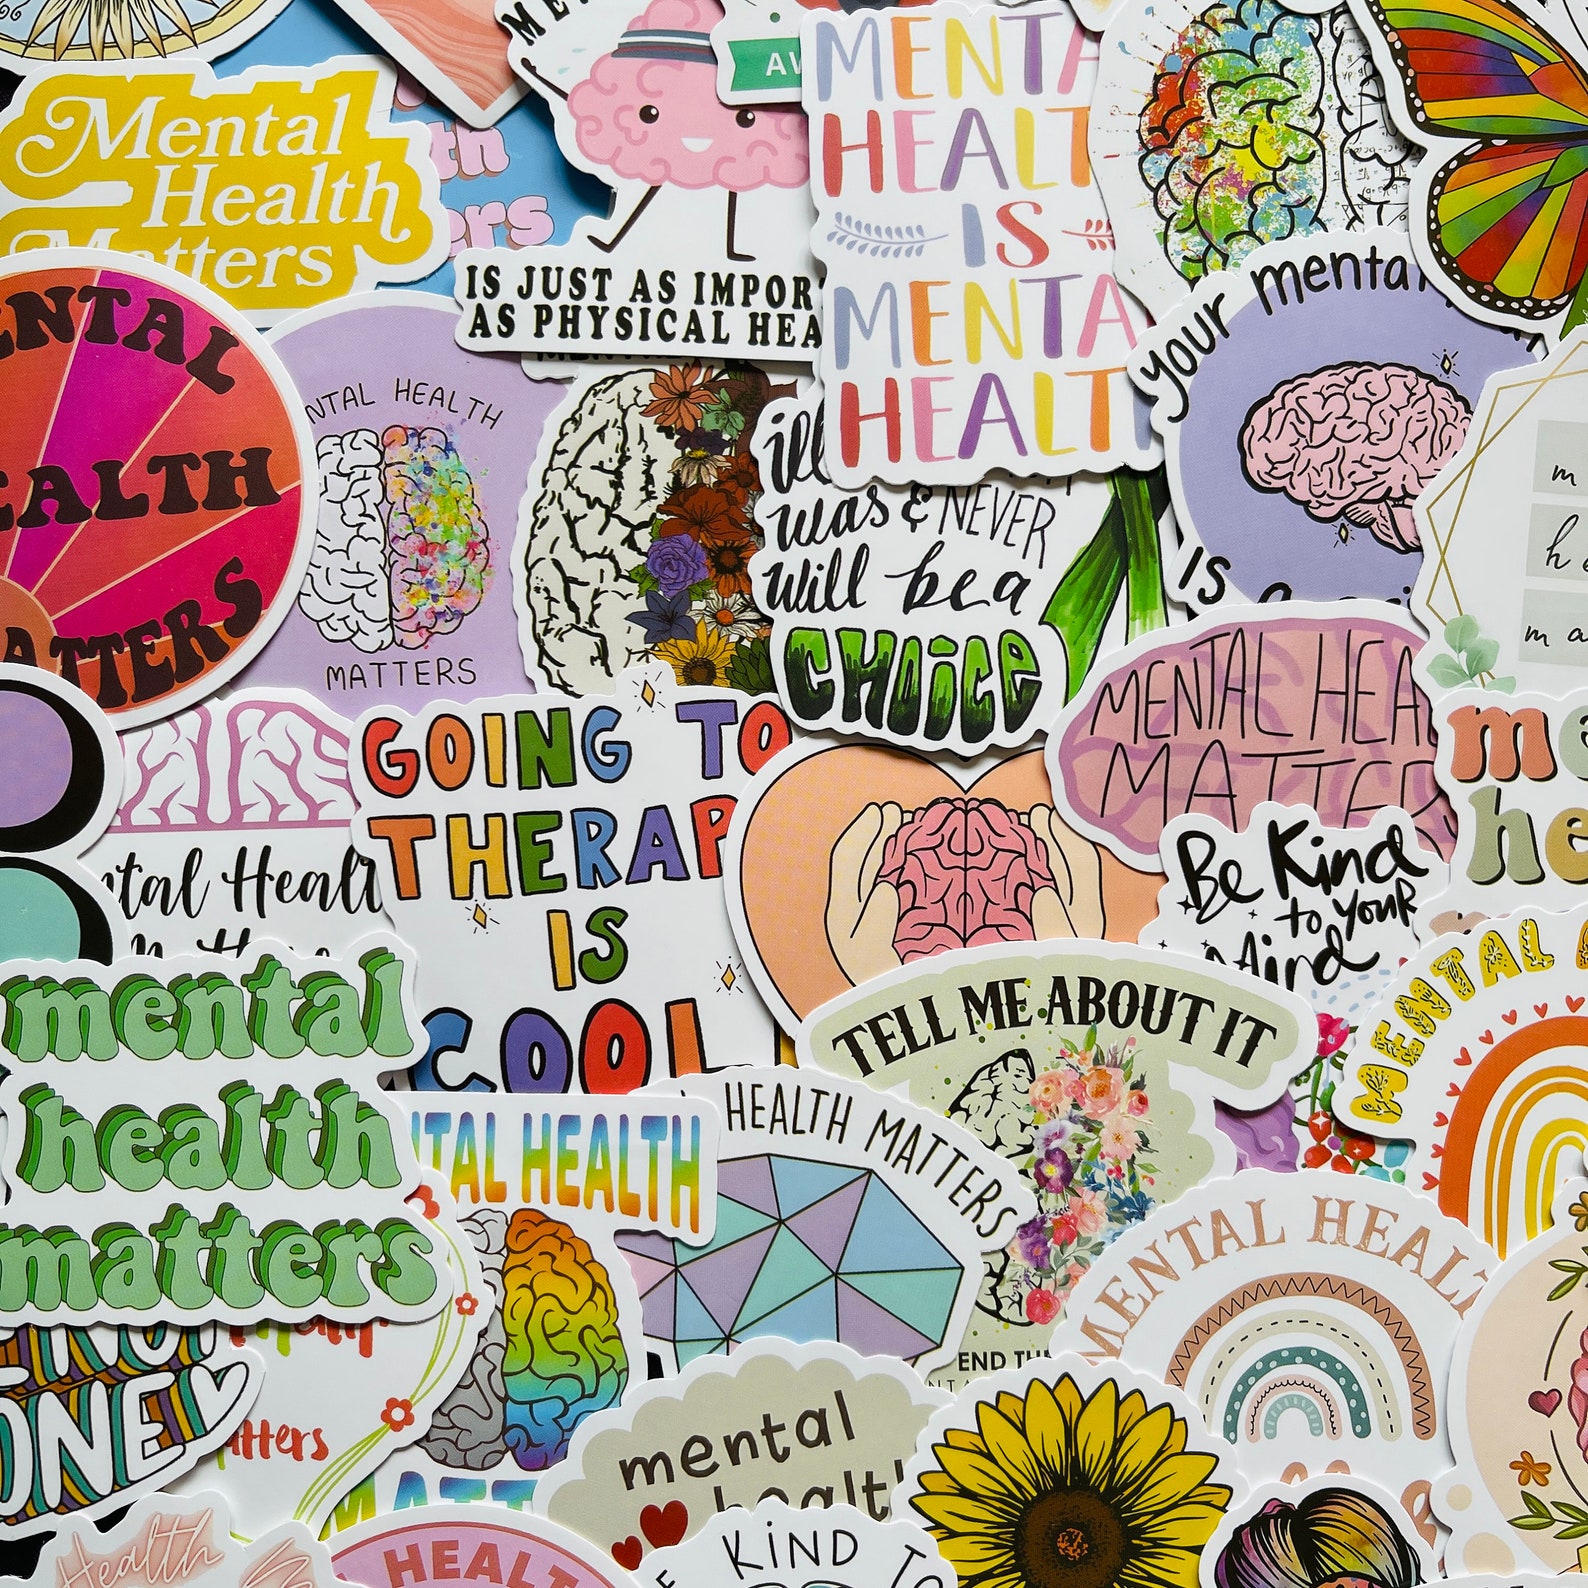 Mental
Health
Matters
MENTAL
HEALTH
MATTERS
IS JUST AS IMPOR
AS PHYSICAL HEA
AW
MENTA
HEALT
IS
MENTA
HEALT
your menta
IS
NTAL HEALTH
MATTERS
ill
was & NEVER
will be a
CHOiCE
m
h e
m a
MENTAL HEA
MATTER
GOING TO
THERAP
IS
COOL
Be Kind
to your
Mind
me
he
ntal Healt
TELL ME ABOUT IT
END THE
MENTAL
mental
health
matters
HEALTH MATTERS
NTAL HEALTH
MATT
MENTAL HEAL
ONE
atters
mental
healt
Health
HEALT
KiND TO